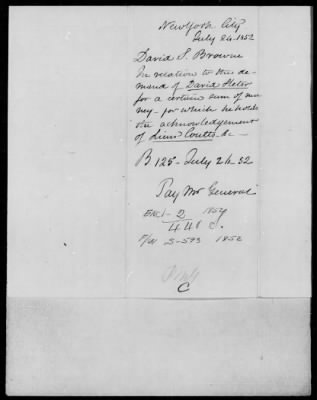 New York City
July 24. 1852
David S. Browne
In relation to the de-
mand of David
for a certain sum of mo
ney - for which he holds
the acknowledgement
of Lieut Coutts &c -
B 125 - July 26 - 52
Pay Mr General
Encl - 2 1854
448 C.
F/W S-593 1852
C